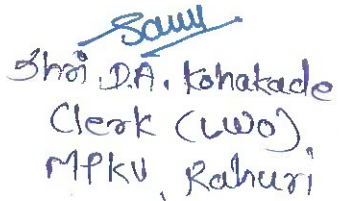 Shri. D.A. Kohakade
Clerk (LWO)
MPKV, Rahuri